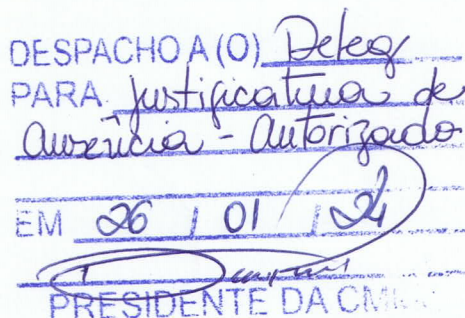 DESPACHO A (O) Deleg
PARA justificativa de
ausência - Autorizado
EM 26 / 01 / 24
PRESIDENTE DA CM